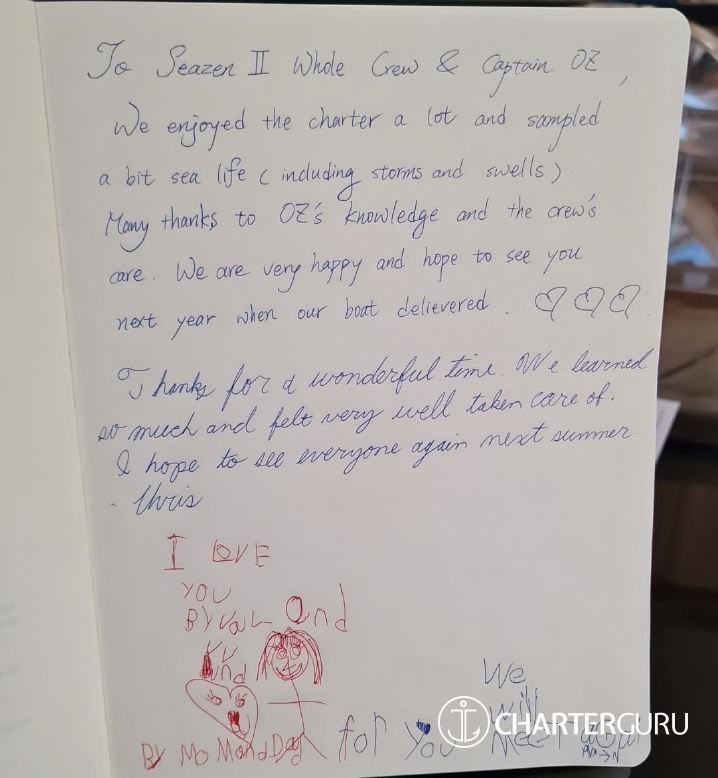 To Seazen II Whole Crew & Captain OZ,
We enjoyed the charter a lot and soompled
a bit sea life (including storms and swells).
Many thanks to OZ's knowledge and the crew's
care. We are very happy and hope to see you
next year when our boat delievered.
Thanks for a wonderful time. We learned
so much and felt very well taken care of.
I hope to see everyone again next summer
- Chris
I LOVE
YOU
and
and
By Mo Mand Dad for You
We
will
CHARTERGURU